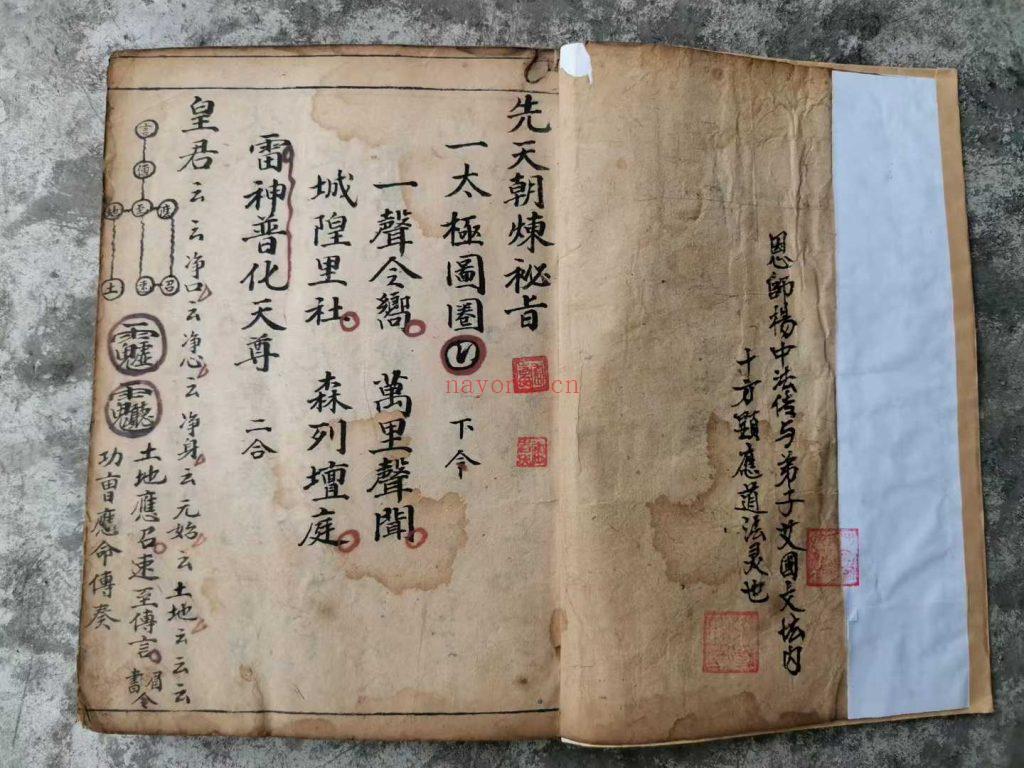 恩師楊中法传与弟子艾國文坛内
十方顕應道法灵也
先天朝煉祕旨
一太極圖圈 下令
一聲令嚮 萬里聲聞
城隍里社 森列壇庭
雷神普化天尊 二合
皇君云云净口云净心云净身云元始云土地云云云
土地應召速至傳言
書
功曹應命傳奏
nayona.cn